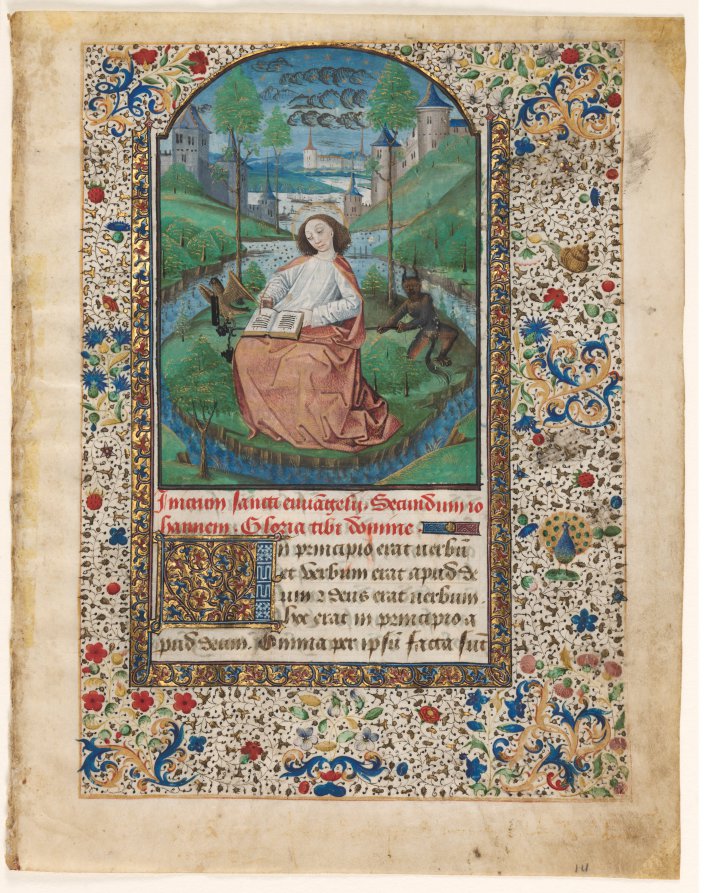 Inicium sancti euuãgelij. Secundum io
hannem. Gloria tibi domine
In principio erat uerbũ
et verbum erat apud de
um ⁊ deus erat uerbum.
hoc erat in principio a
pud deum. Omnia per ipsũ facta sũt